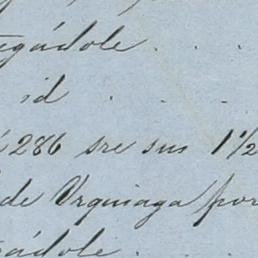 egádole . . .
id . .
286 sre sus 1 1/2
de Urquiaga por
gádole .